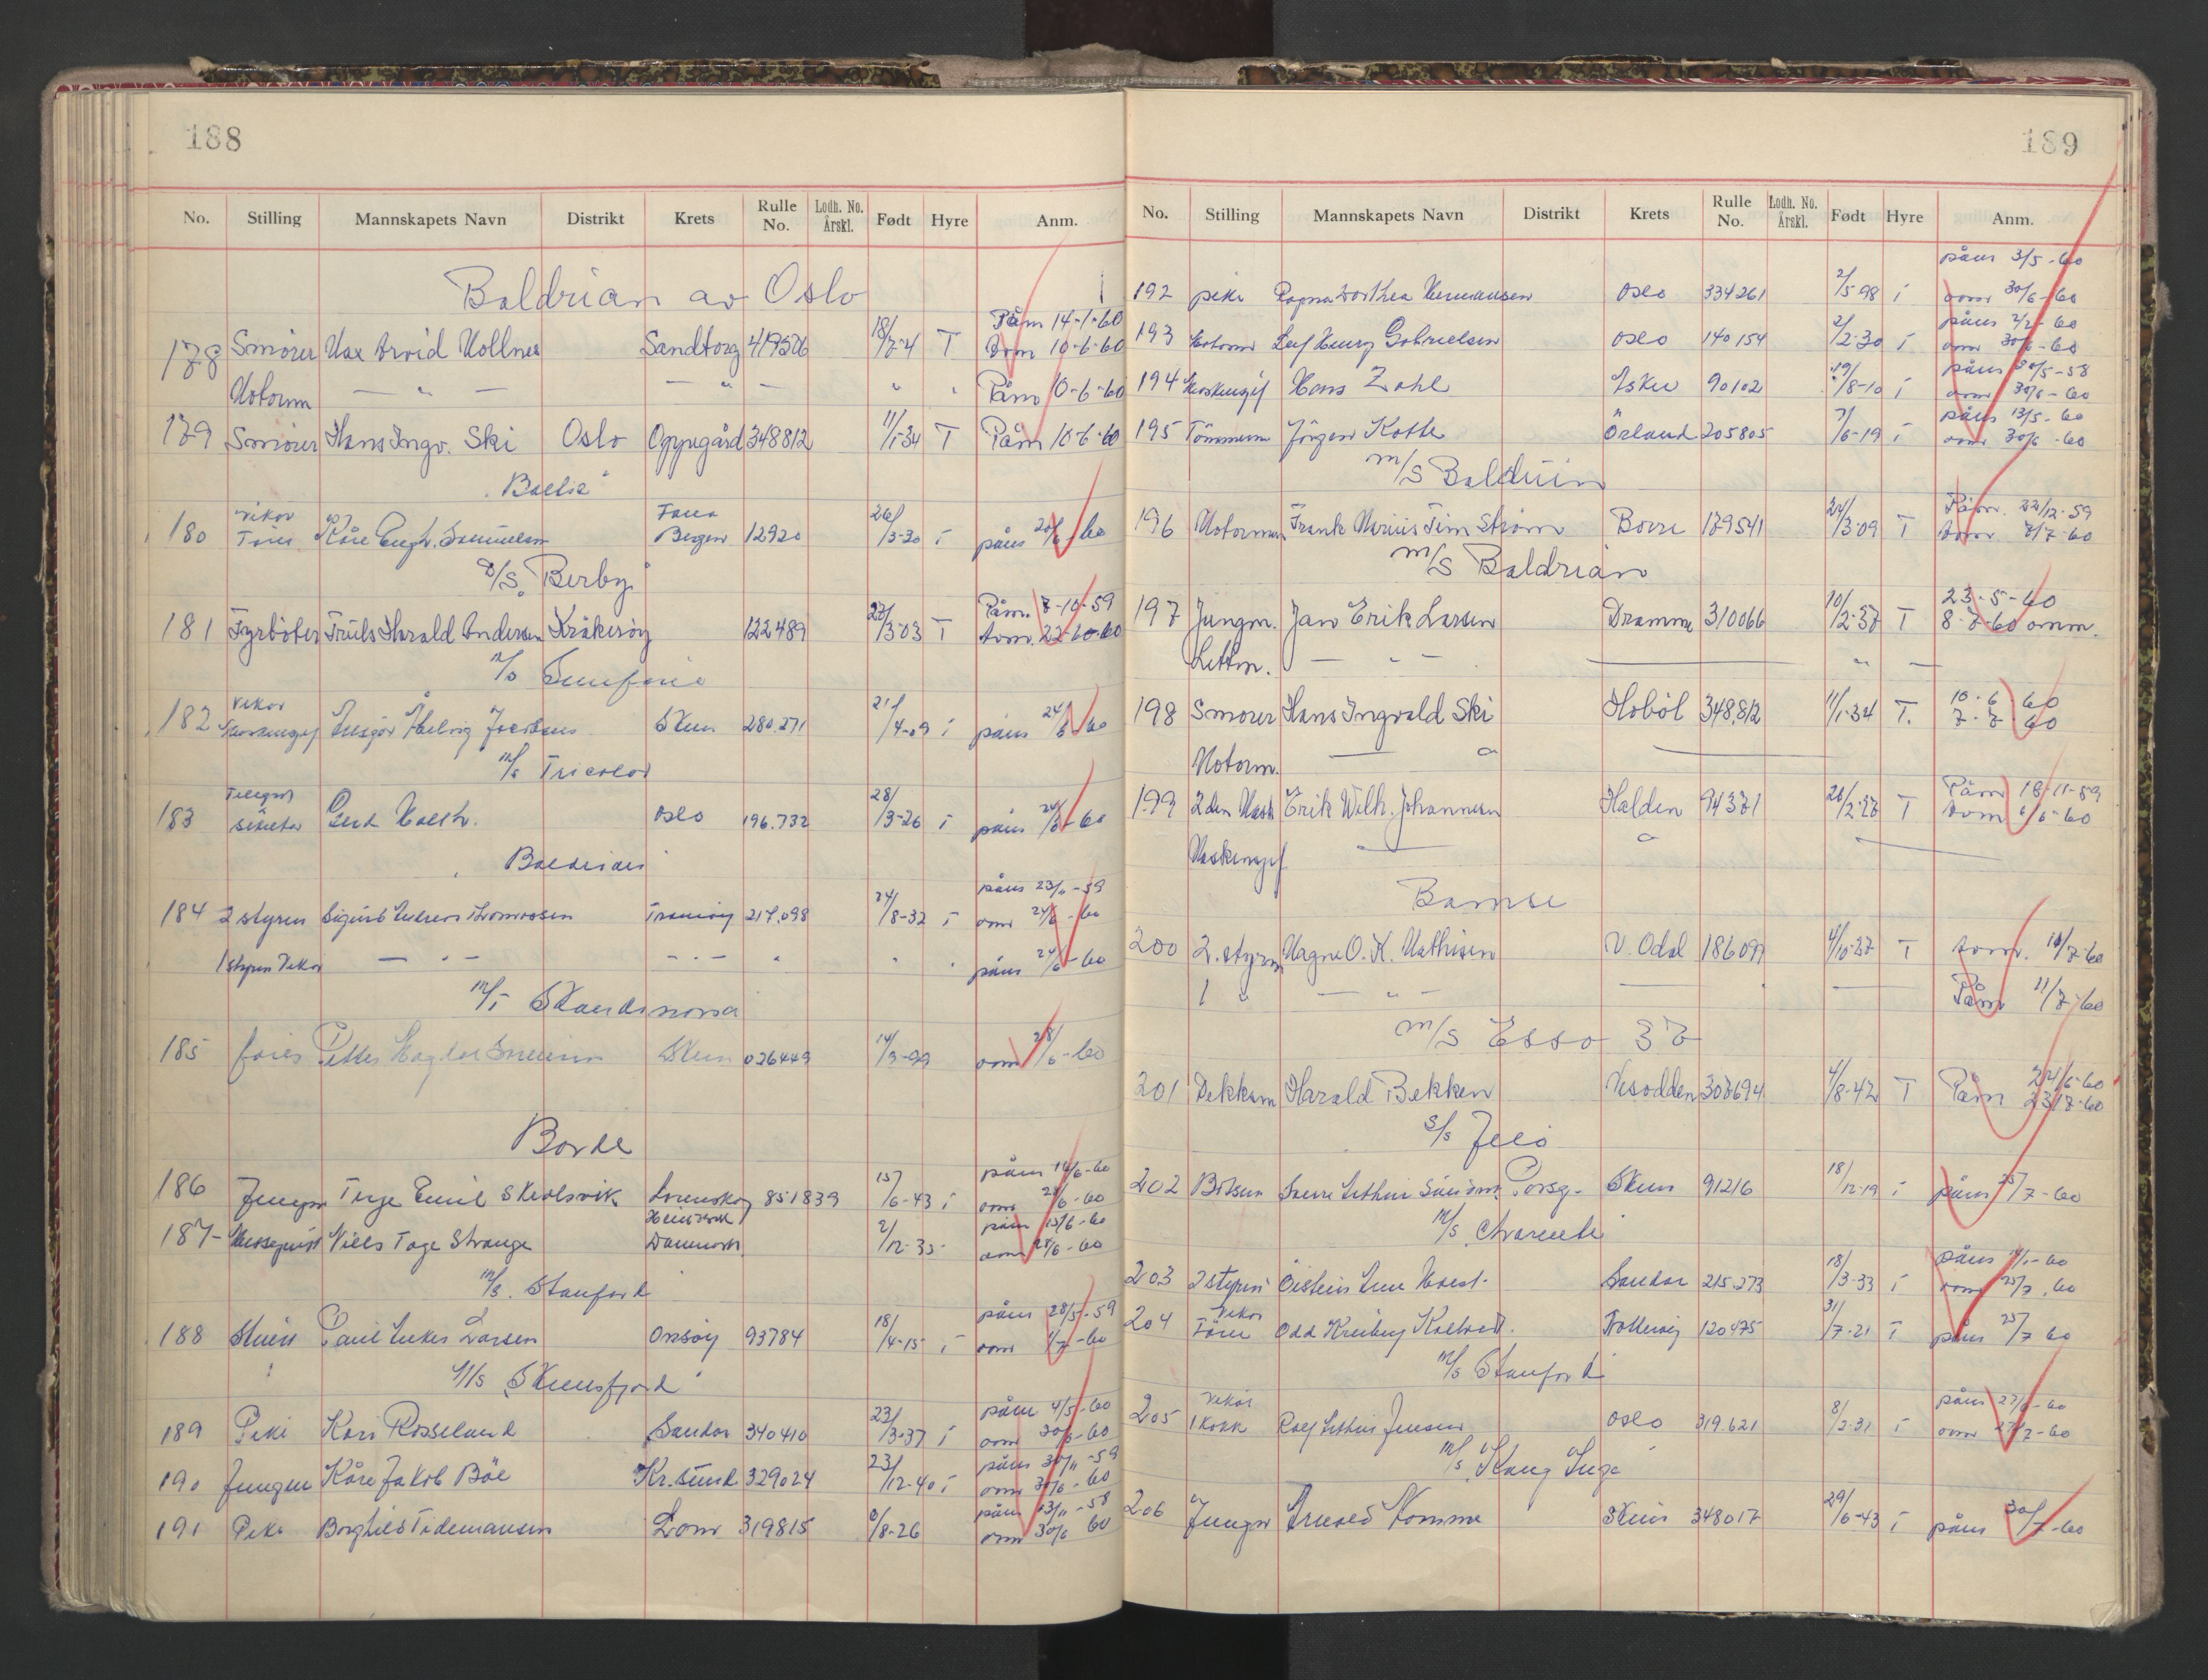 188
No. Stilling Mannskapets Navn Distrikt Krets Rulle No. Lodh. No. Årskl. Født Hyre Anm.
Baldrian av Oslo
178 Smører Max Arvid Mollnes Sandtorg 419526 18/7-4 T Påm 14-1-60
Avm 10-6-60
Motorm — " — — " — " " Påm 10-6-60
179 Smører Hans Ingv. Ski Oslo Oppegård 348812 11/1-34 T Påm 10-6-60
"Baltic"
180 vikar Fana
Kåre Engh. Samuelsen Bergen 12920 26/3-30 i påm 20/6-60
D/S "Berby"
181 Fyrbøter Truls Harald Andersen Kråkerøy 122489 22/3-03 T Påm. 8-10-59
Avm. 22-6-60
M/S
182 vikar
Skien 280.271 21/4-09 i påm 24/6-60
M/S Tricolor
183 Telegraf
Oslo 196.732 28/3-26 i påm 24/6-60
Baldrian
184 2 styrm Sigurd Thomassen Tromøy 217.098 24/8-32 i påm 23/11-59
avm 24/6-60
1 styrm vikar — " — — " — " " påm 24/6-60
185 Petter Skien 026449 14/3-99 avm 28/6-60
186 Jungm Terje Emil Skiolsvik Lørenskog 851839 15/6-43 i påm 16/6-60
avm 28/6-60
187 Niels Tage Strange Danmark 2/12-35 påm 13/6-60
avm 28/6-60
M/S. Stanford
188 Larsen Onsøy 93784 18/4-15 i påm 28/5-59
avm 1/7-60
M/S Skiensfjord
189 Pike Kari Rosseland Sandar 340410 23/3-37 i påm 4/5-60
avm 30/6-60
190 Jungm Kåre Jakob Bøe Kr.sund 329024 23/12-40 i påm 30/11-59
avm 30/6-60
191 Pike Borghild Tidemansen Lom 319815 6/8-26 påm 13/11-58
avm 30/6 60
189
No. Stilling Mannskapets Navn Distrikt Krets Rulle No. Lodh. No. Årskl. Født Hyre Anm.
192 pike Ragna Dorthea Hermansen Oslo 334261 2/5-98 i påm 3/5-60
avm 30/6-60
193 Motorm Leif Henry Gabrielsen Oslo 140154 2/2-30 i påm 2/2-60
avm 30/6-60
194 Maskinsjef Hans Zahl 90102 19/8-10 i påm 20/5-58
avm 30/6-60
195 Tømmerm Jørgen Kotte Ørland 205805 7/6-19 i påm 13/5-60
avm 30/6-60
M/S Baldrian
196 Motorman Frank Marius Tim Strøm Borre 179541 24/3-09 T Påm. 22/12-59
Avm. 7/7-60
M/S Baldrian
197 Jungm. Jan Erik Larsen Dramm 310066 10/2-37 T 23-5-60
8-7-60 omm.
Lettm. — " — — " —
198 Smører Hans Ingvald Ski Hobøl 348.812 11/1-34 T. 10-6 60
7-7 60
Motorm.
199 2den Mask Erik Wilh. Johannesen Halden 94371 26/2-27 T Påm 18-11-59
Avm 6/6-60
Maskinsjef
Bamse
200 2. styrm Magne O. K. Mathisen V. Odal 186099 4/10-27 T Avm. 10/7-60
1 " — " — Påm 11/7-60
M/S Esso 37
201 Dekksm Harald Bekken Nesodden 307694 4/8-42 T Påm 24/6-60
23/7-60
S/S Jeløo
202 Båtsm Porsg- Skien 91216 18/12-19 i påm 25/7-60
203 2 styrm Øistein Sandar 215.273 18/3-33 i
avm 25/7.60
204 vikar
Odd Kreiberg 120475 31/7-21 i påm 25/7 60
M/S Stanford
205 vikar
1 kokk Rolf Arthur Jensen Oslo 319.621 8/2-31 i påm 27/6-60
avm 27/7-60
M/S Kong Inge
206 Jungm 348017 29/6-43 i påm 30/7-60